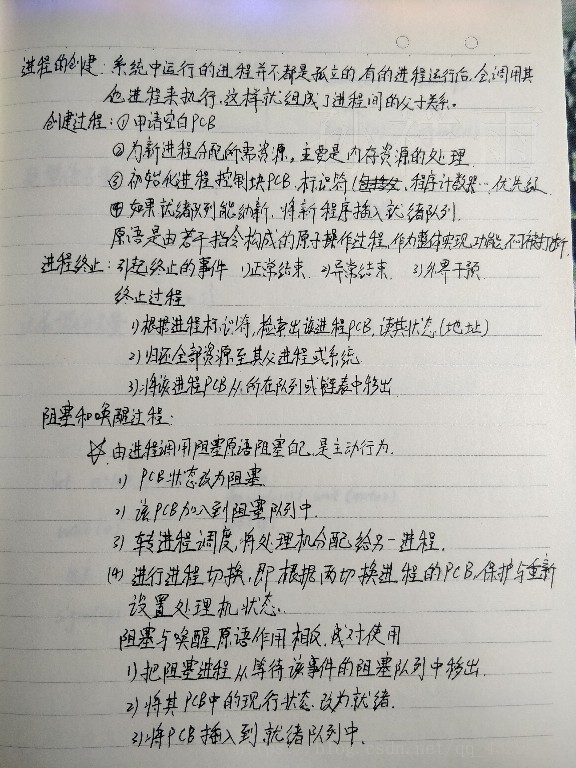 进程的创建：系统中运行的进程并不都是孤立的，有的进程运行后，会调用其
他进程来执行，这样就组成了进程间的父子关系。
创建过程：①申请空白PCB
②为新进程分配所需资源，主要是内存资源的处理
③初始化进程控制块PCB，标识符，程序计数器…优先级
④如果就绪队列能纳新，将新程序插入就绪队列.
原语是由若干指令构成的原子操作过程，作为整体实现功能，不可被打断.
进程终止：引起终止的事件 1)正常结束 2)异常结束 3)外界干预
终止过程
1)根据进程标识符，检索出该进程PCB，读其状态.(地址)
2)归还全部资源至其父进程或系统
3)将该进程PCB从所在队列或链表中移出
阻塞和唤醒过程：
☆由进程调用阻塞原语阻塞自己，是主动行为.
1) PCB状态改为阻塞
2)该PCB加入到阻塞队列中.
3)转进程调度，将处理机分配给另一进程.
(4)进行进程切换，即根据两切换进程的PCB，保护与重新
设置处理机状态.
阻塞与唤醒原语作用相反，成对使用
1)把阻塞进程从等待该事件的阻塞队列中移出.
2)将其PCB中的现行状态改为就绪.
3)将PCB插入到就绪队列中.